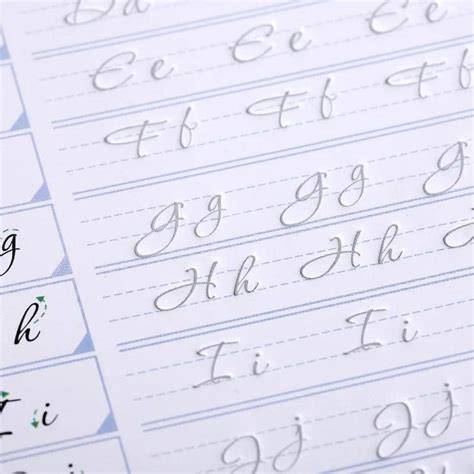 E e E e E e
F f F f F
g G g G g G
h H h H h
I i I i I i
J j J j